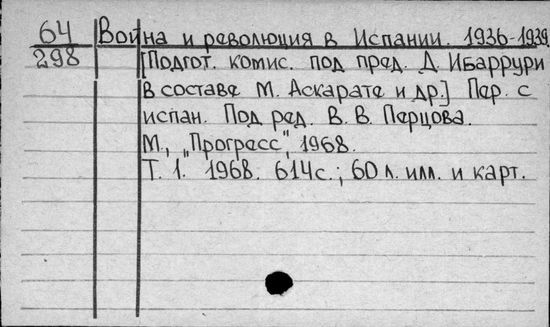 64
298
Война и революция в Испании. 1936-1939
[Подгот. комис. под пред. Д. Ибаррури
в составе М. Аскарате и др.] Пер. с
испан. Под ред. В. В. Перцова.
М., „Прогресс", 1968.
Т. 1. 1968. 614с.; 60 л. илл. и карт.